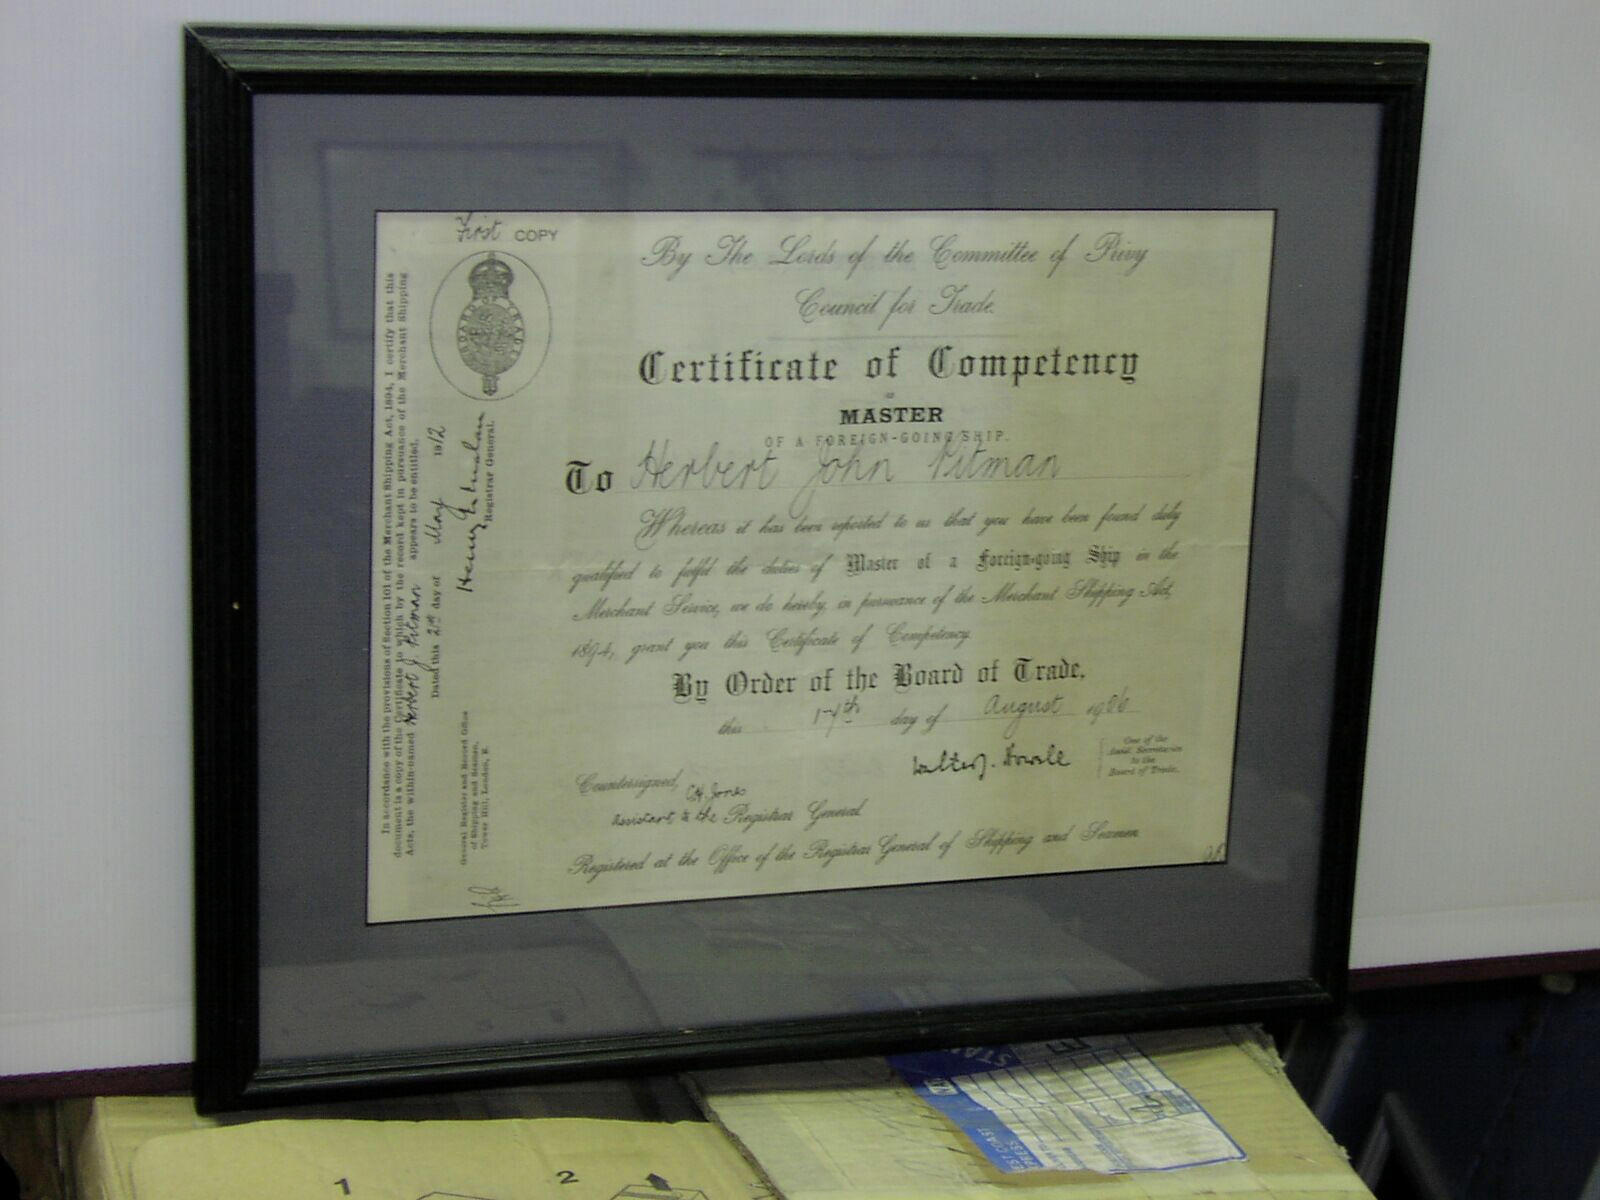 First COPY
By The Lords of the Committee of Privy
Council for Trade.
Certificate of Competency
as
MASTER
OF A FOREIGN-GOING SHIP.
To Herbert John Pitman
Whereas it has been reported to us that you have been found duly
qualified to fulfil the duties of Master of a Foreign-going Ship in the
Merchant Service, we do hereby, in pursuance of the Merchant Shipping Act,
1894, grant you this Certificate of Competency.
By Order of the Board of Trade,
this 17th day of August 1906
Walter J. Howell
One of the
Asst. Secretaries
to the
Board of Trade.
Countersigned,
C.H. Jones
Assistant to the Registrar General.
Registered at the Office of the Registrar General of Shipping and Seamen
In accordance with the provisions of Section 101 of the Merchant Shipping Act, 1894, I certify that this
document is a copy of the Certificate to which by the record kept in pursuance of the Merchant Shipping
Acts, the within-named Herbert J. Pitman appears to be entitled.
Dated this 2nd day of May 1912
Henry
Registrar General.
General Register and Record Office
of Shipping and Seamen,
Tower Hill, London, E.
BOARD OF TRADE
1 2